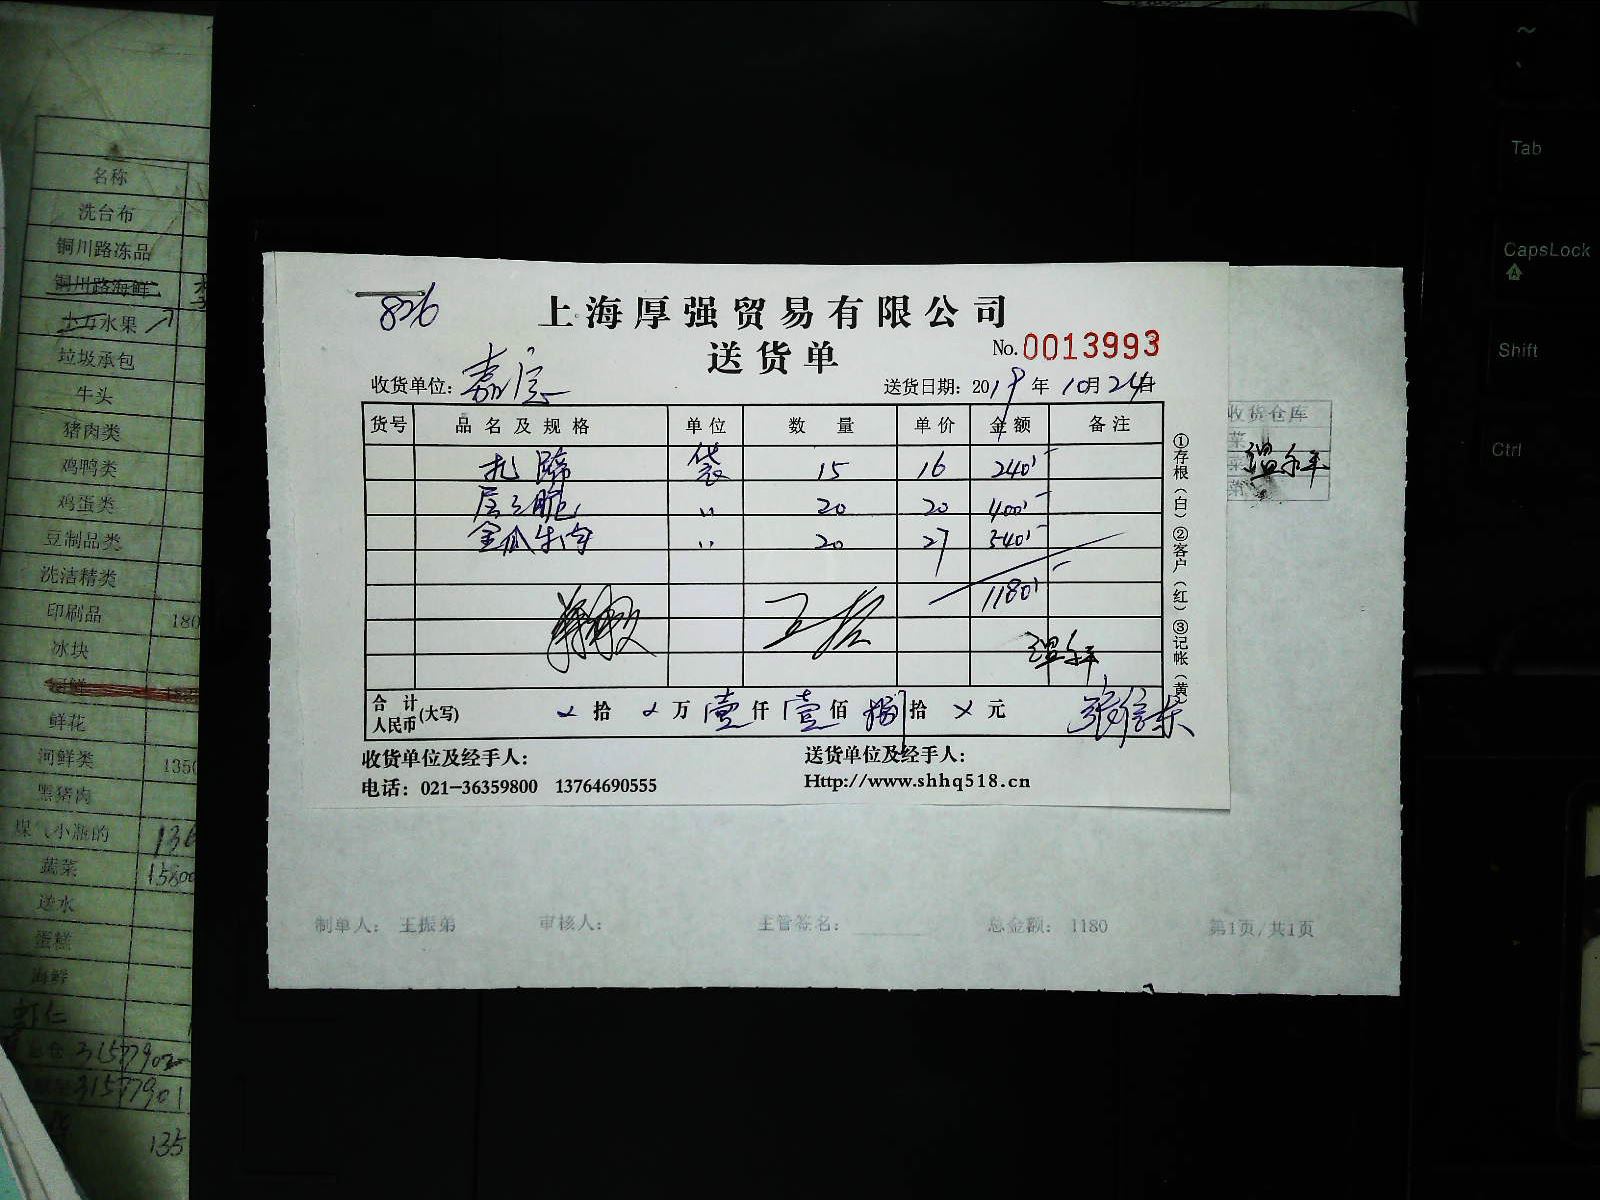 826
上海厚强贸易有限公司
送货单
No. 0013993
收货单位: 嘉定
送货日期: 2019年10月24日
货号 品名及规格 单位 数量 单价 金额 备注
扎蹄 袋 15 16 240
层之脆 〃 20 20 400
金瓜牛肉 〃 20 27 540
1180
温年平
合计人民币(大写) 拾 万 壹仟 壹佰 捌拾 元
收货单位及经手人:
送货单位及经手人:
电话: 021-36359800 13764690555
Http://www.shhq518.cn
①存根(白)②客户(红)③记帐(黄)
收货仓库
制单人: 王振弟 审核人: 主管签名: 总金额: 1180 第1页/共1页
名称
洗台布
铜川路冻品
铜川路海鲜
水果
垃圾承包
牛头
猪肉类
鸡鸭类
鸡蛋类
豆制品类
洗洁精类
印刷品 180
冰块
鲜花
河鲜类 1350
黑猪肉
煤气小瓶的 136
蔬菜 15800
送水
蛋糕
海鲜
虾仁
31577902
31577901
135
~
Tab
CapsLock
A
Shift
Ctrl